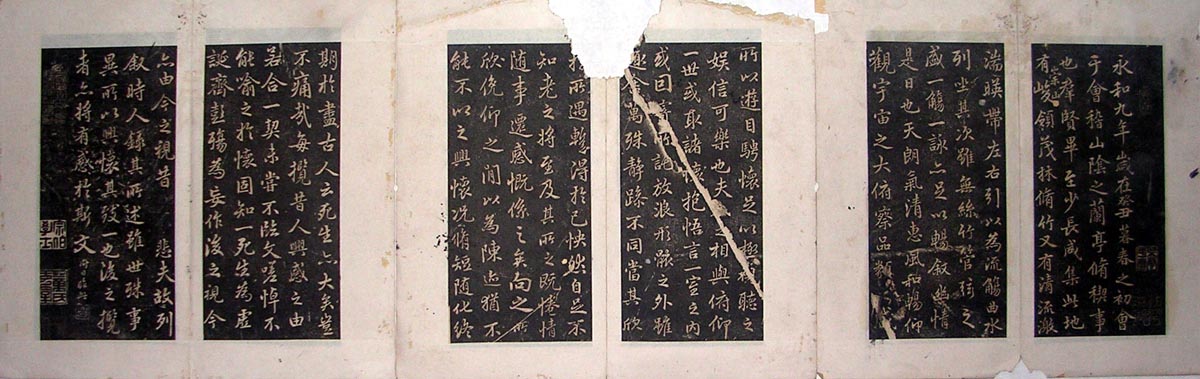 永和九年歲在癸丑暮春之初會
于會稽山陰之蘭亭脩稧事
也羣賢畢至少長咸集此地
有崇山峻領茂林脩竹又有清流激
湍暎帶左右引以為流觴曲水
列坐其次雖無絲竹管弦之
盛一觴一詠亦足以暢敘幽情
是日也天朗氣清惠風和暢仰
觀宇宙之大俯察品類
所以遊目騁懷足以極聽之
娛信可樂也夫之相與俯仰
一世或取諸懷抱悟言一室之內
或因託放浪形骸之外雖
趣萬殊靜躁不同當其欣
於所遇蹔得於己怏然自足不
知老之將至及其所之既惓情
随事遷感慨係之矣向之所
欣俛仰之閒以為陳迹猶不
能不以之興懷況脩短随化終
期於盡古人云死生亦大矣豈
不痛哉每攬昔人興感之由
若合一契未嘗不臨文嗟悼不
能喻之於懷固知一死生為虛
誕齊彭殤為妄作後之視今
亦由今之視昔 悲夫故列
敘時人錄其所述雖世殊事
異所以興懷其致一也後之攬
者亦將有感於斯文